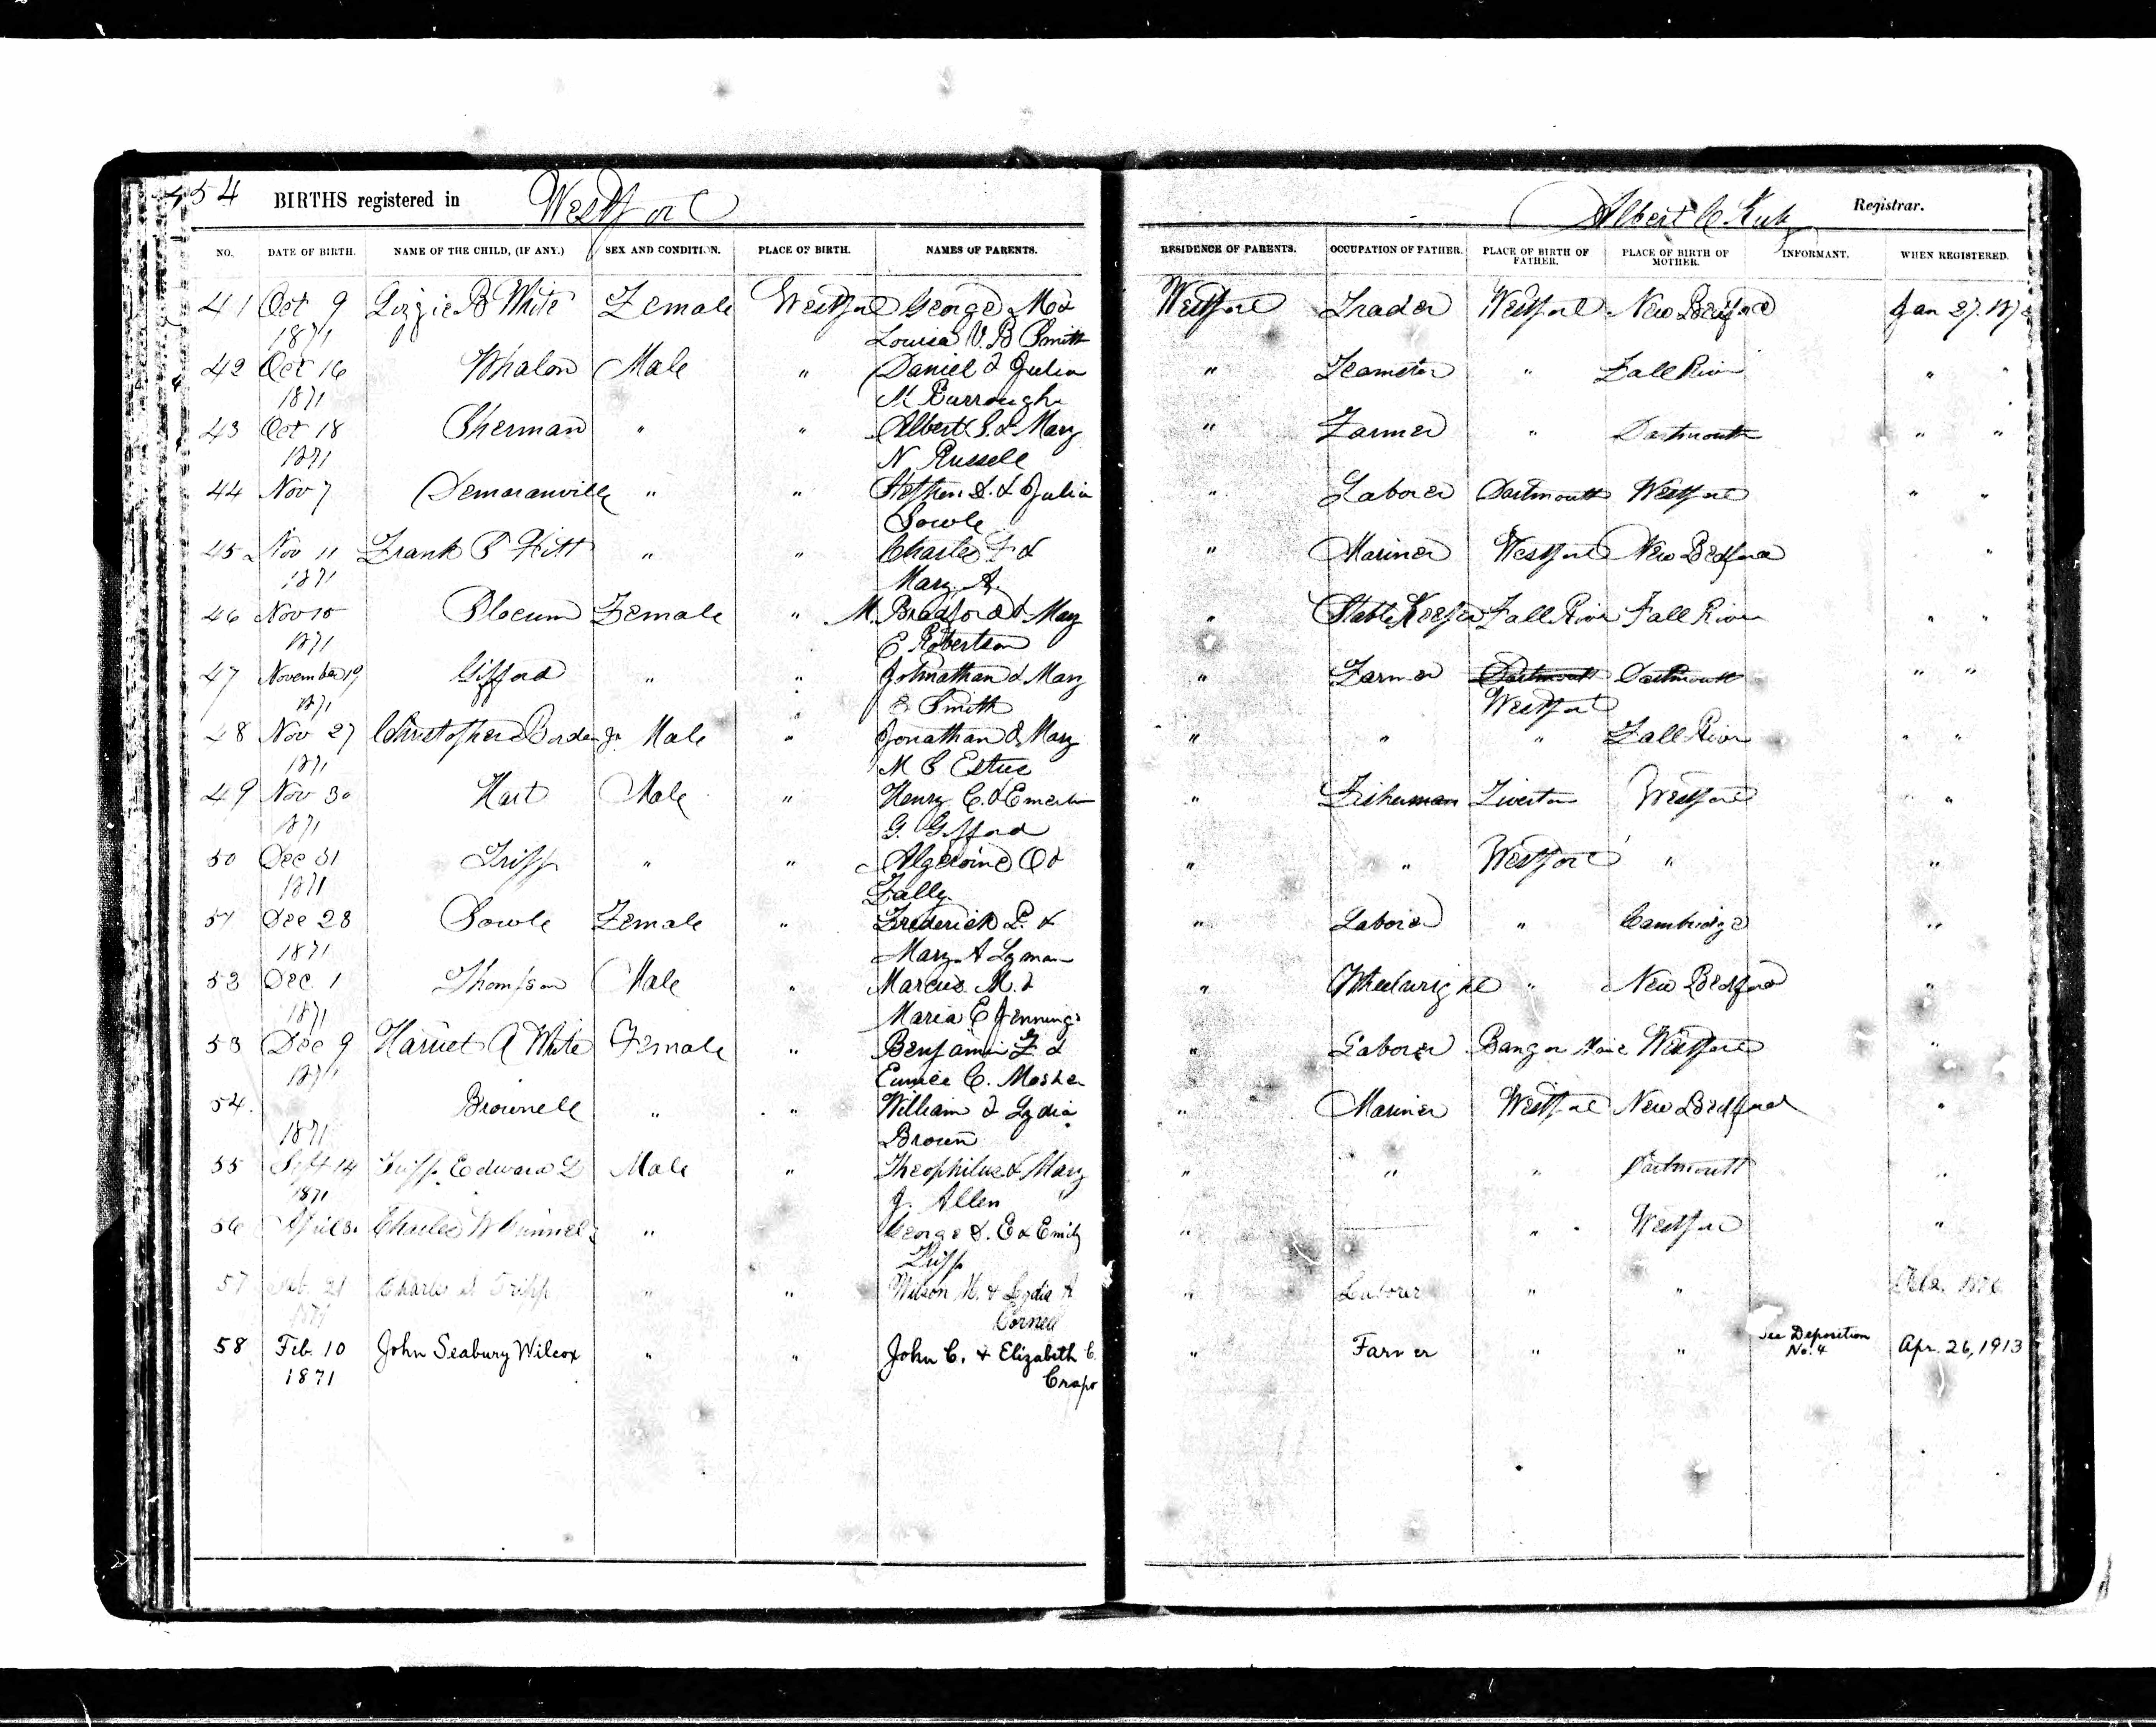 454 BIRTHS registered in Westport Albert C. Kirk Registrar.
NO. DATE OF BIRTH. NAME OF THE CHILD, (IF ANY.) SEX AND CONDITION. PLACE OF BIRTH. NAMES OF PARENTS. RESIDENCE OF PARENTS. OCCUPATION OF FATHER. PLACE OF BIRTH OF FATHER. PLACE OF BIRTH OF MOTHER. INFORMANT. WHEN REGISTERED.
41 Oct 9 Lizzie B White Female Westport George M & Westport Trader Westport New Bedford Jan 27. 187
1871 Louisa V. B Smith
42 Oct 16 Whalon Male " Daniel & Julia " Teamster " Fall River " "
1871 M Burroughs
43 Oct 18 Sherman " " Albert S. & Mary " Farmer " Dartmouth " "
1871 N Russell
44 Nov 7 Demoranville " " Stephen D. & Julia " Laborer Dartmouth Westport " "
Sowle
45 Nov 11 Frank S Fitt " " Charles F & " Mariner Westport New Bedford "
1871 Mary A.
46 Nov 15 Slocum Female " M. Bradford & Mary " Stable Keeper Fall River Fall River " "
1871 E Robertson
47 November 19 Gifford " " Johnathan & Mary " Farmer Dartmouth Dartmouth " "
1871 E Smith Westport
48 Nov 27 Christopher Borden Jr Male " Jonathan & Mary " " " Fall River " "
1871 M S Estes
49 Nov 30 Hart Male " Henry C. & Emerline " Fisherman Tiverton Westport "
1871 G. Gifford
50 Dec 31 Tripp " " Algeroine O & " " Westport " "
1871 Fally
51 Dec 28 Sowle Female " Frederick P. & " Laborer " Cambridge "
1871 Mary A Lyman
53 Dec. 1 Thompson Male " Marcus M. & " Wheelwright " New Bedford "
1871 Maria E Jennings
53 Dec 9 Harriet A White Female " Benjamin F. & " Laborer Bangor Maine Westport "
1871 Eunice C. Mosher
54. Brownell " " William & Lydia " Mariner Westport New Bedford "
1871 Brown
55 Sept 14 Tripp Edward D Male " Theophilus & Mary " " " Dartmouth "
1871 J. Allen
56 April 3. Charles W " George S. E & Emily " " Westport "
Tripp
57 Feb. 21 Charles S Tripp " " Wilson H. & Lydia A " Laborer " "
1871 Cornell
58 Feb. 10 John Seabury Wilcox " " John C. & Elizabeth C. " Farmer " " See Deposition Apr. 26, 1913
1871 Crapo No. 4